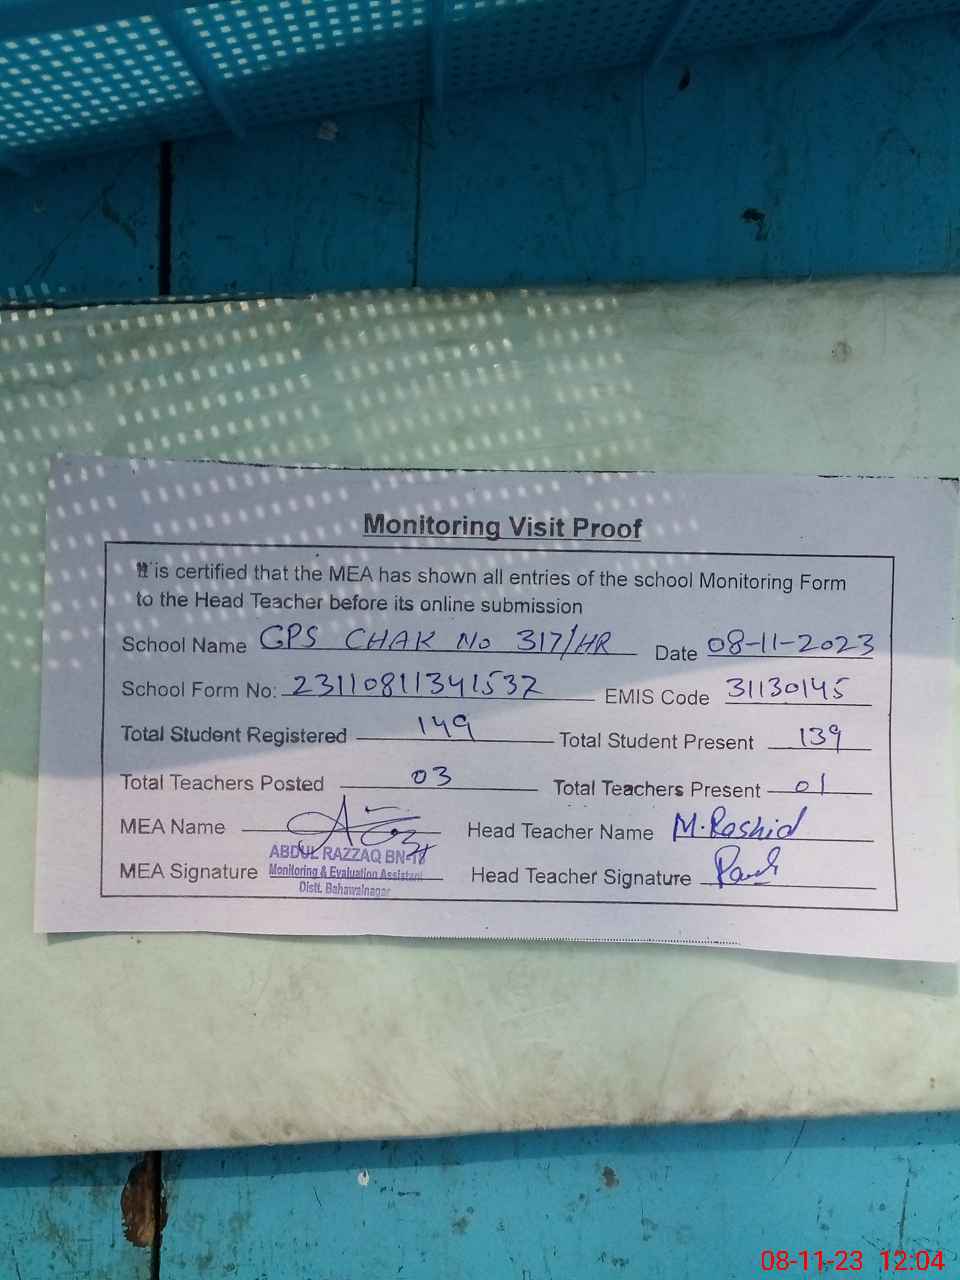 Monitoring Visit Proof
It is certified that the MEA has shown all entries of the school Monitoring Form
to the Head Teacher before its online submission
School Name GPS CHAK No 317/HR Date 08-11-2023
School Form No: 23110811341537 EMIS Code 31130145
Total Student Registered 149 Total Student Present 139
Total Teachers Posted 03 Total Teachers Present 01
MEA Name Head Teacher Name M.Rashid
ABDUL RAZZAQ BN-18
MEA Signature Monitoring & Evaluation Assistant Head Teacher Signature
Distt. Bahawalnagar
08-11-23 12:04